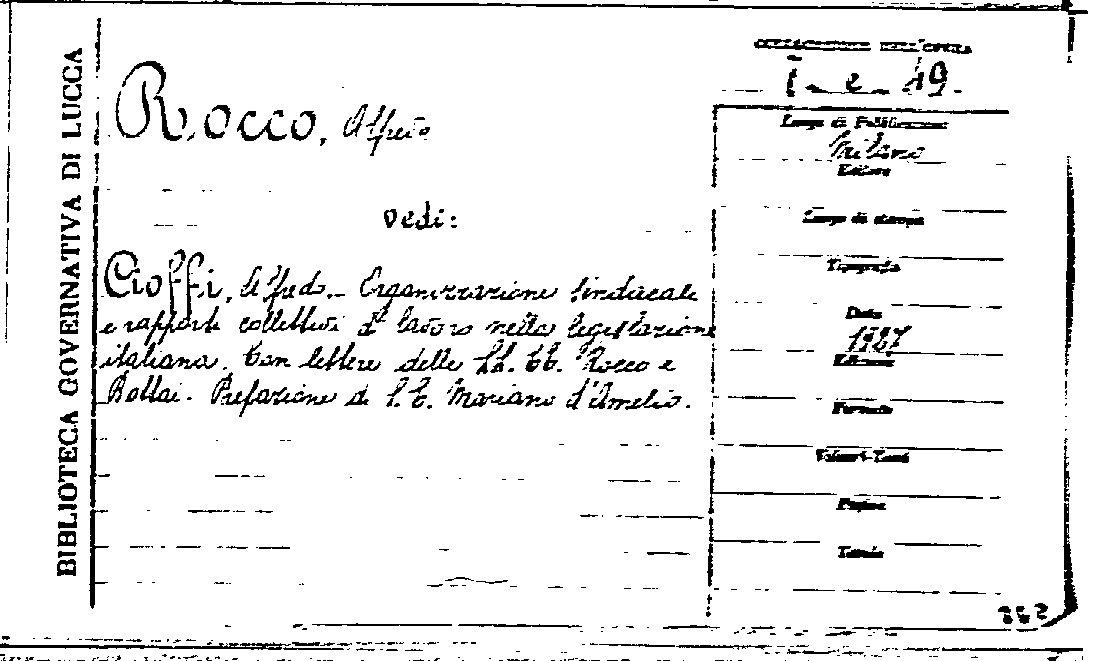 BIBLIOTECA GOVERNATIVA DI LUCCA
COLLOCAZIONE DELL'OPERA
I. e. 49.
Rocco, Alfredo
vedi:
Cioffi, Alfredo. - Organizzazione sindacale
e rapporti collettivi di lavoro nella legislazione
italiana. Con lettere delle LL. EE. Rocco e
Bottai. Prefazione di S. E. Mariano d'Amelio.
Luogo di Pubblicazione
Milano
Editore
Luogo di stampa
Tipografia
Data
Edizione
Formato
Volumi-Tomi
Pagine
Tavole